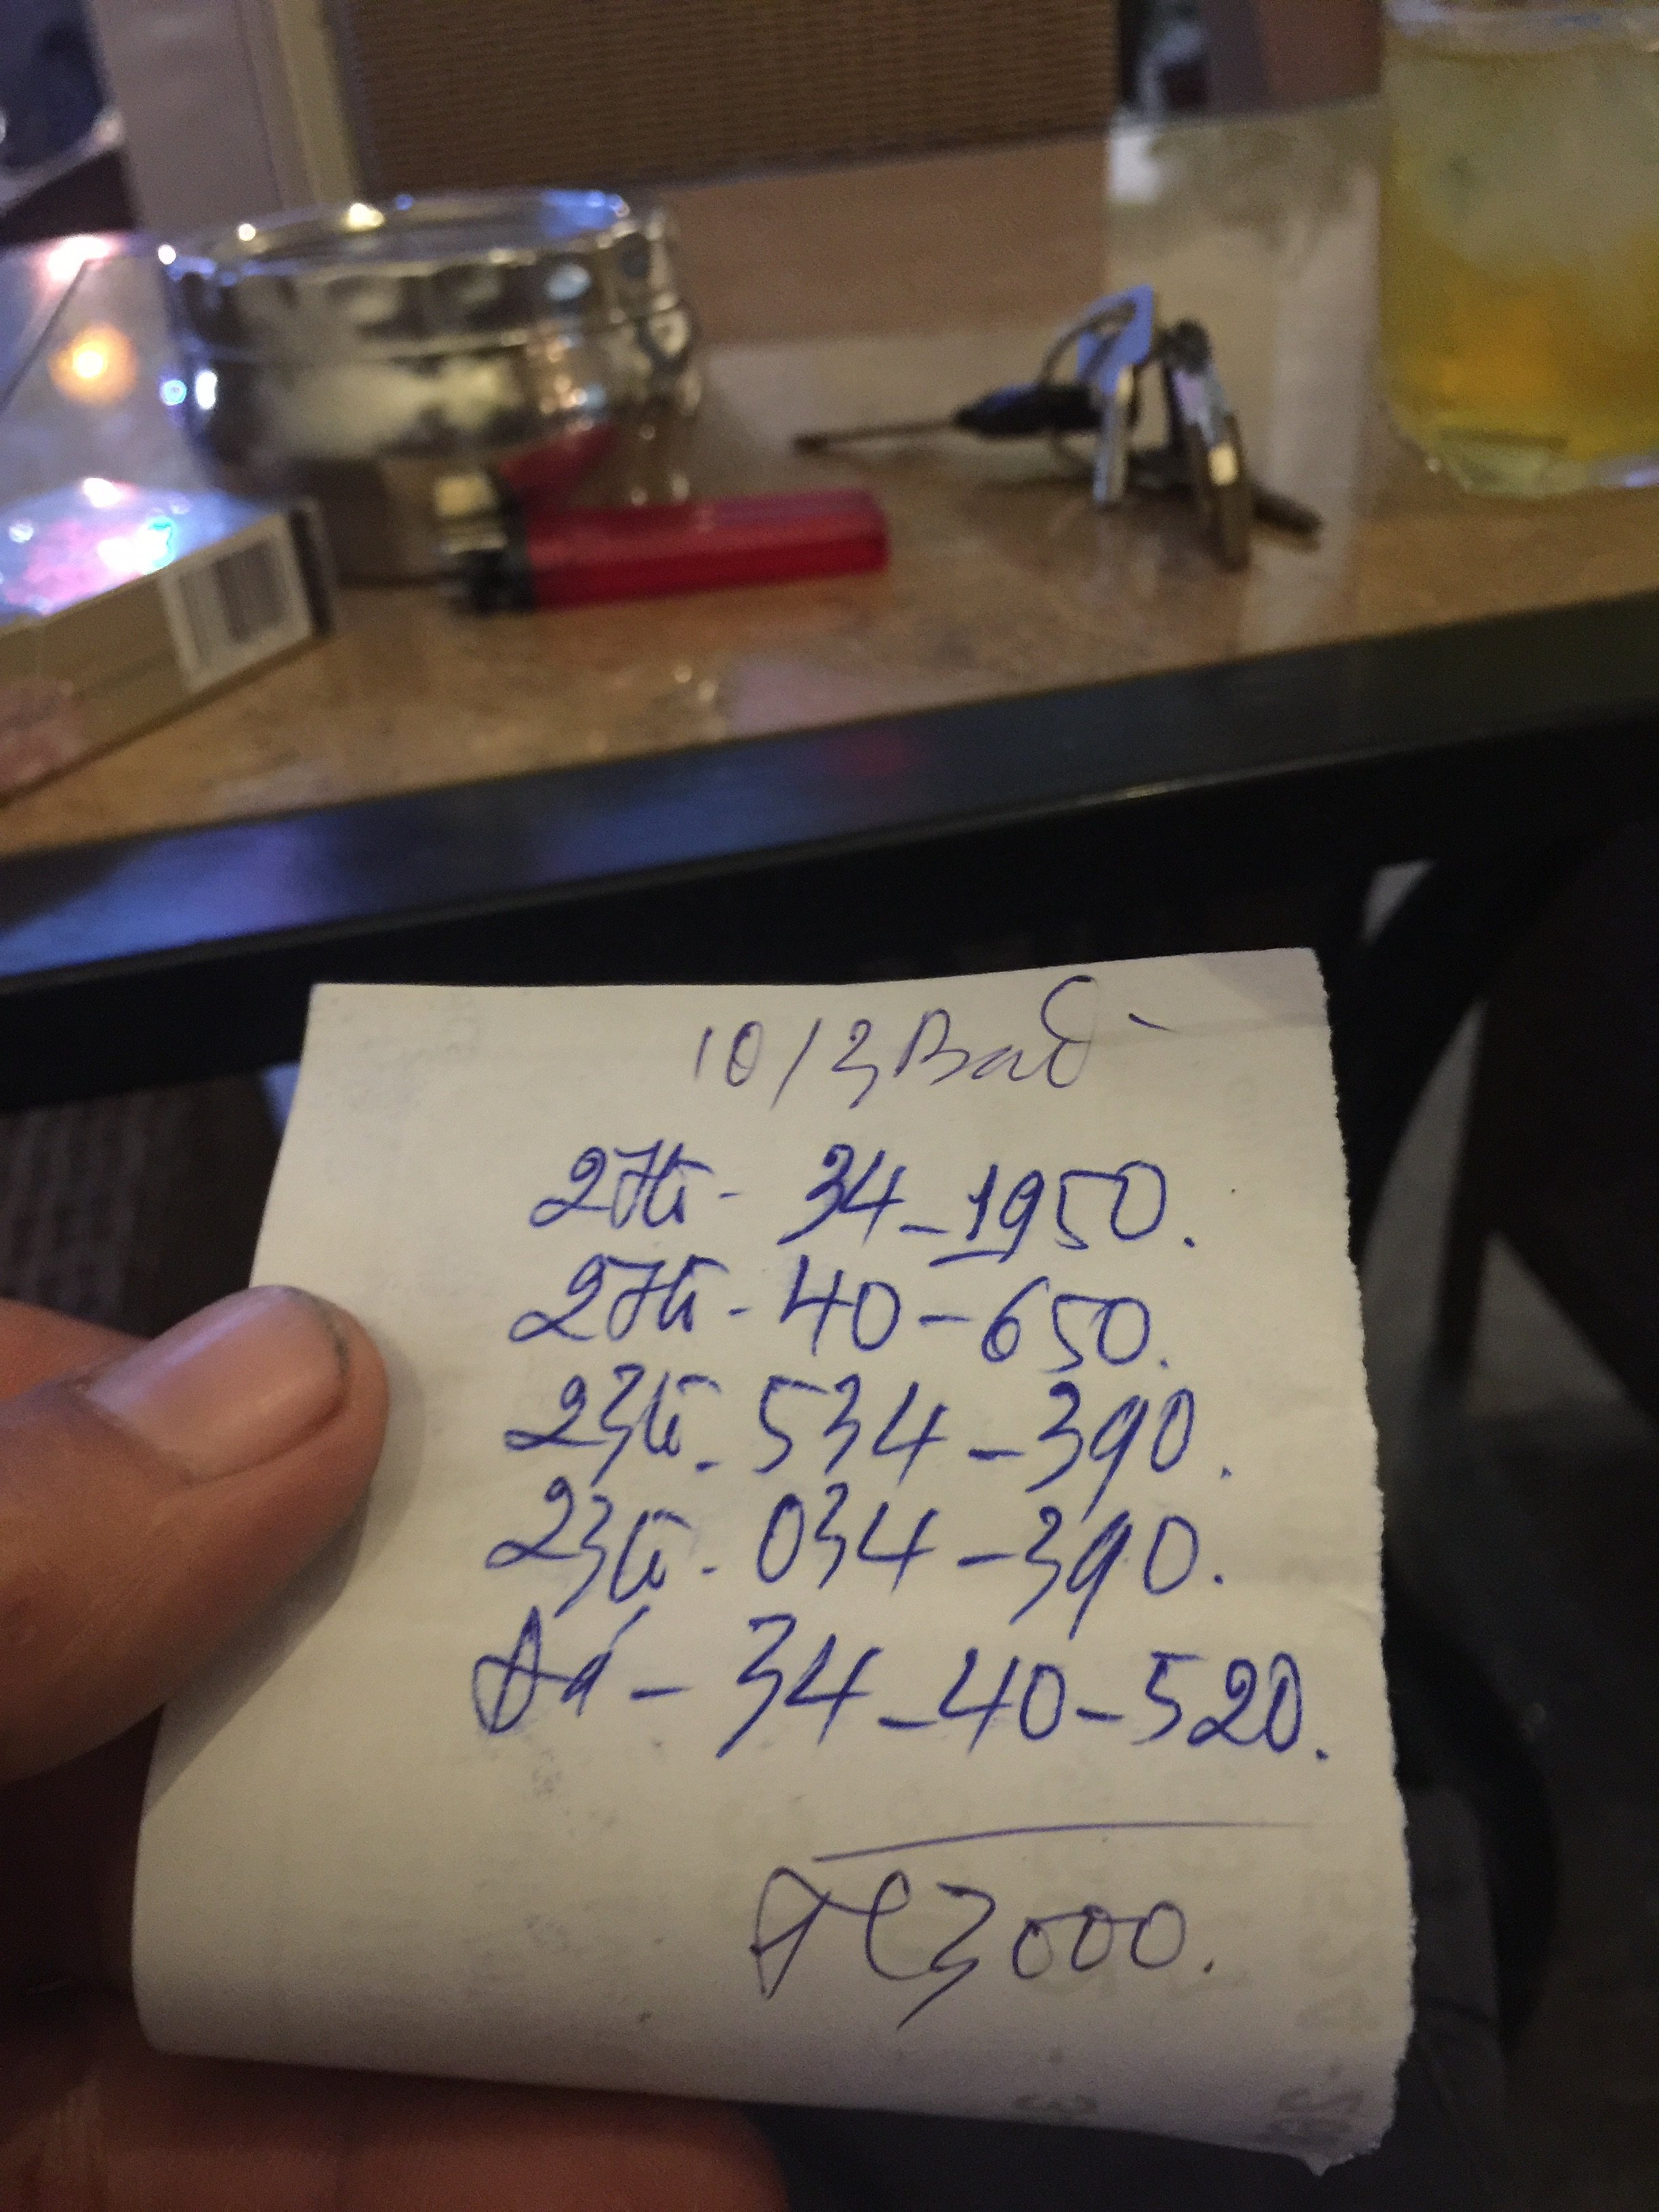 10/3 Bắc
27ti - 34 - 1950.
27ti - 40 - 650.
23ti - 534 - 390.
23ti - 034 - 390.
Đá - 34 - 40 - 520.
3000.